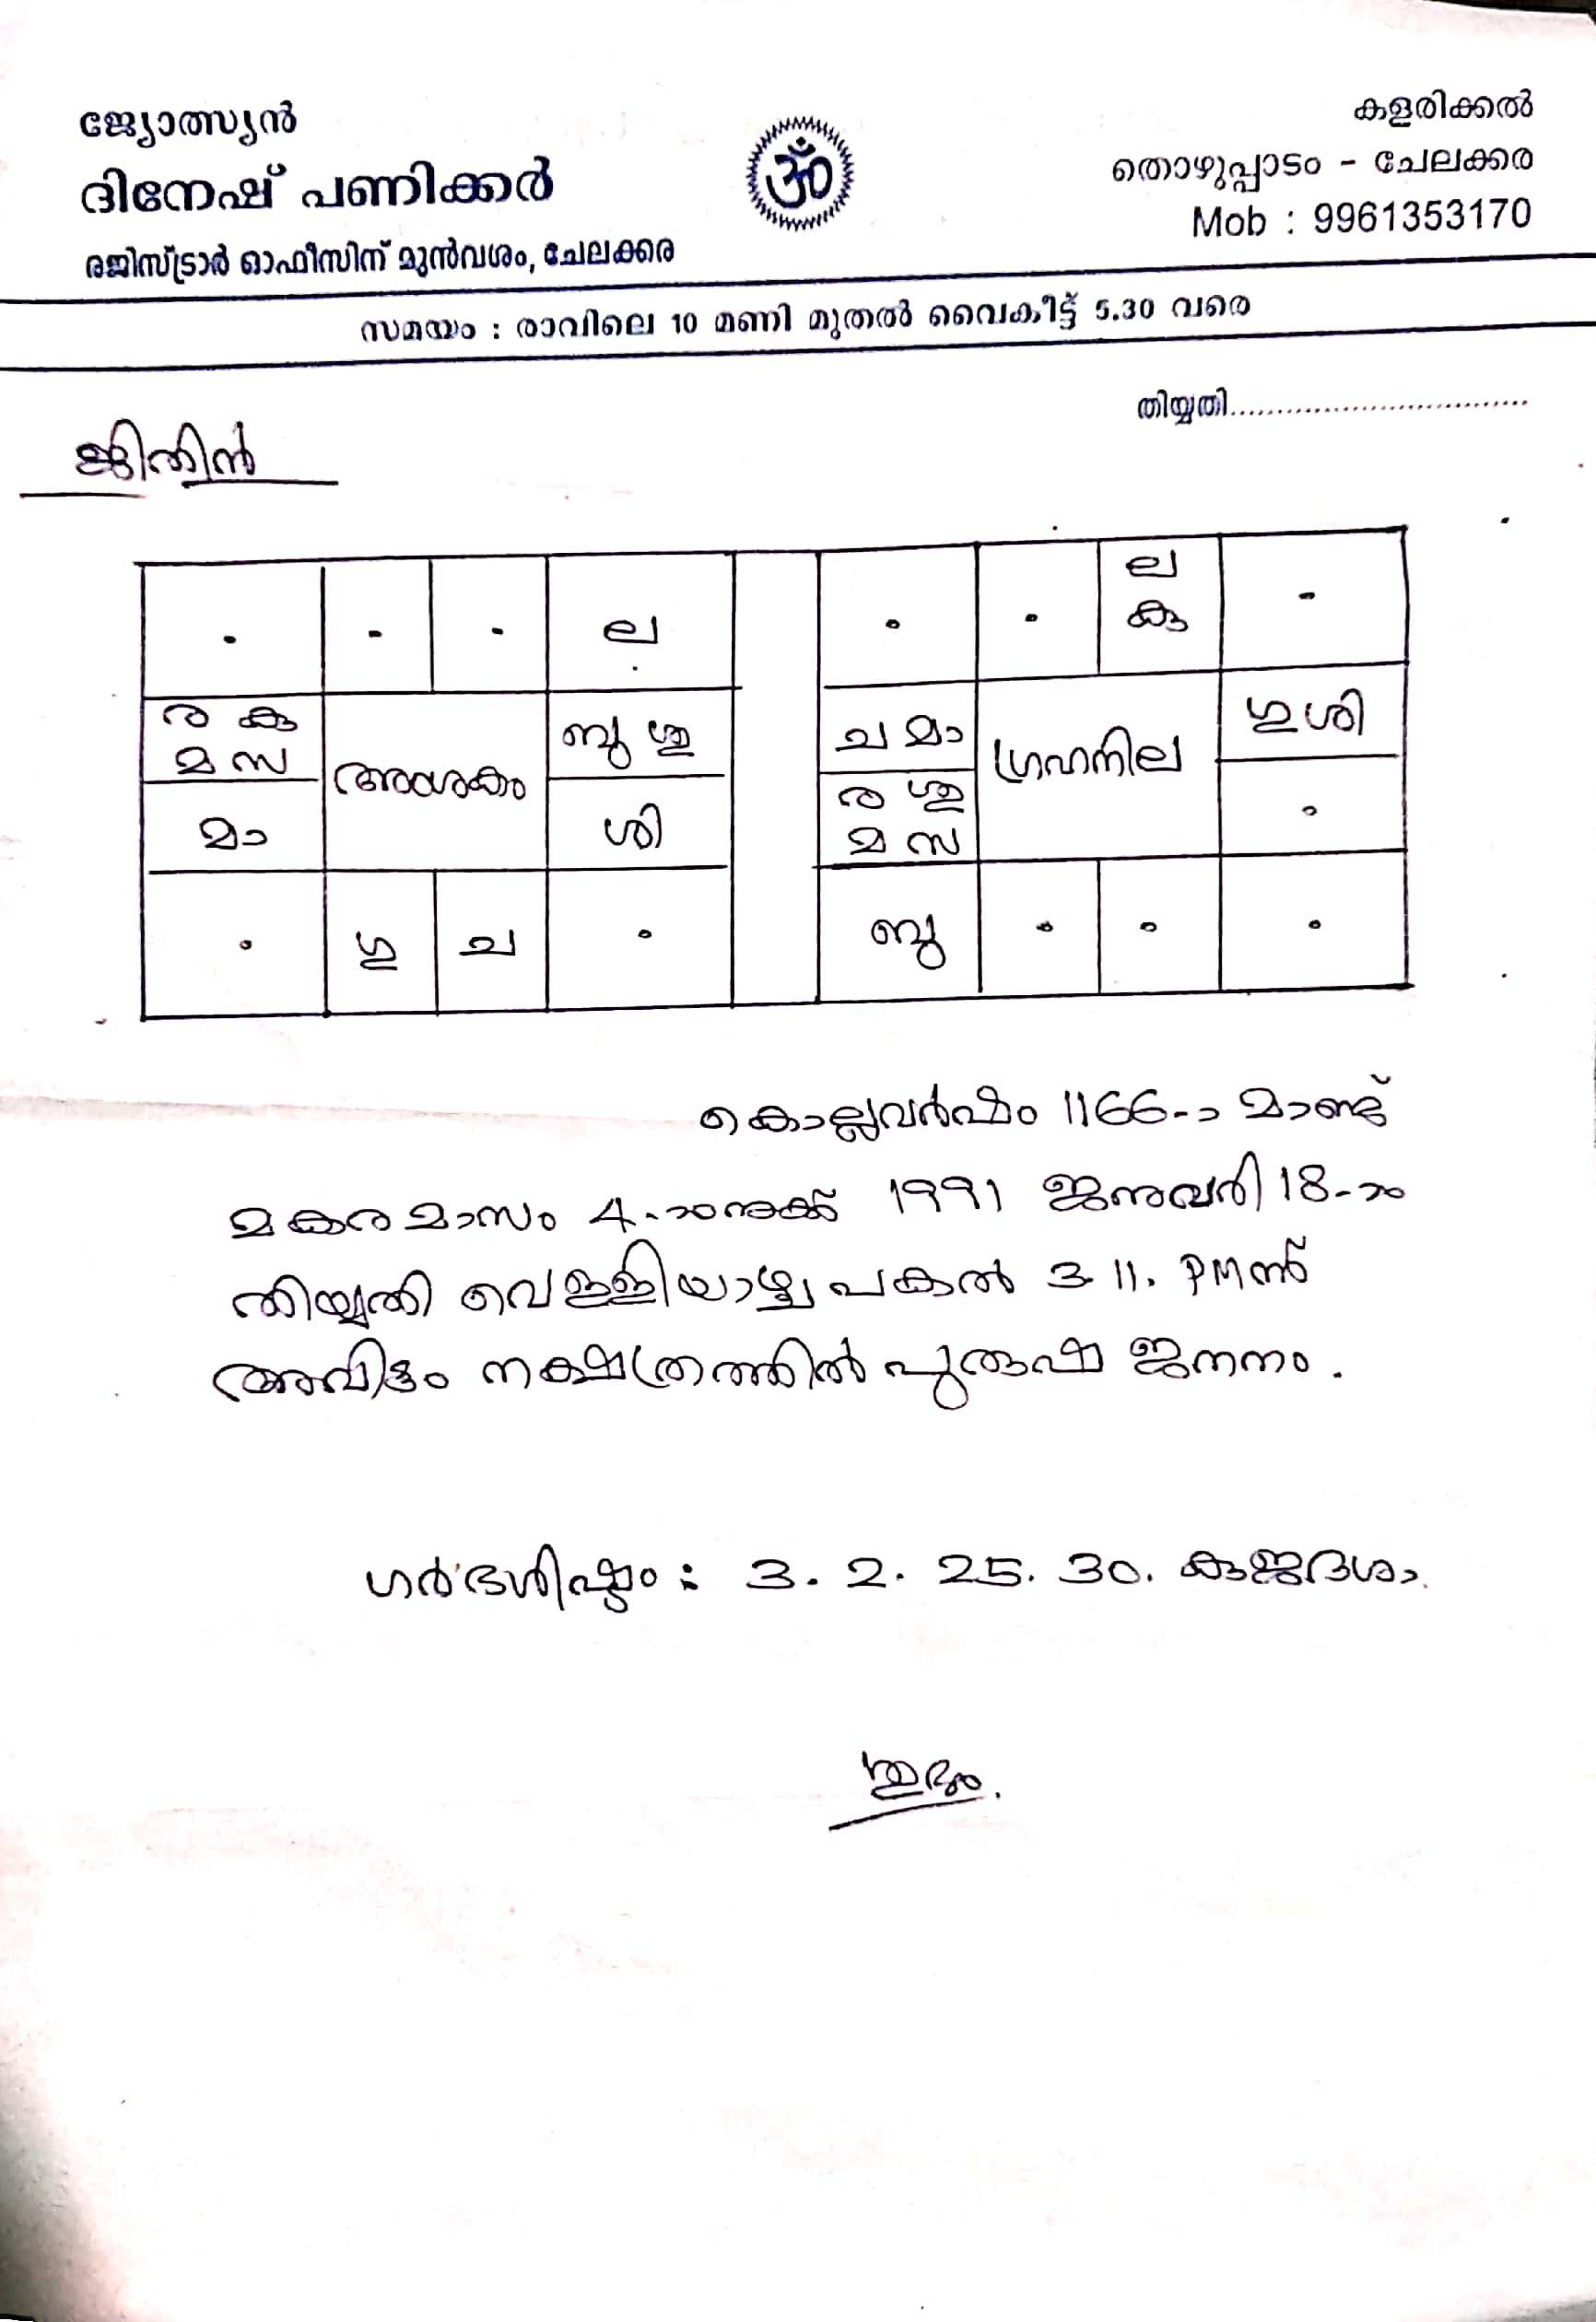 ജ്യോത്സ്യൻ
ദിനേഷ് പണിക്കർ
രജിസ്ട്രാർ ഓഫീസിന് മുൻവശം, ചേലക്കര
ॐ
കളരിക്കൽ
തൊഴുപ്പാടം - ചേലക്കര
Mob : 9961353170
സമയം : രാവിലെ 10 മണി മുതൽ വൈകീട്ട് 5.30 വരെ
തിയ്യതി................................
ജിതിൻ
ല
ര കു
മ സ
അംശകം
ബു ശു
മാ
ശി
ഗു ച
ല
കു
ച മാ
ഗ്രഹനില
ഗു ശി
ര ശു
മ സ
ബു
കൊല്ലവർഷം 1166-ാ മാണ്ട്
മകരമാസം 4-ാംനുക്ക് 1991 ജനുവരി 18-ാം
തിയ്യതി വെള്ളിയാഴ്ച പകൽ 3.11. PM ന്
അവിട്ടം നക്ഷത്രത്തിൽ പുരുഷ ജനനം.
ഗർഭശിഷ്ടം : 3. 2. 25. 30. കുജദശാ.
ശുഭം.